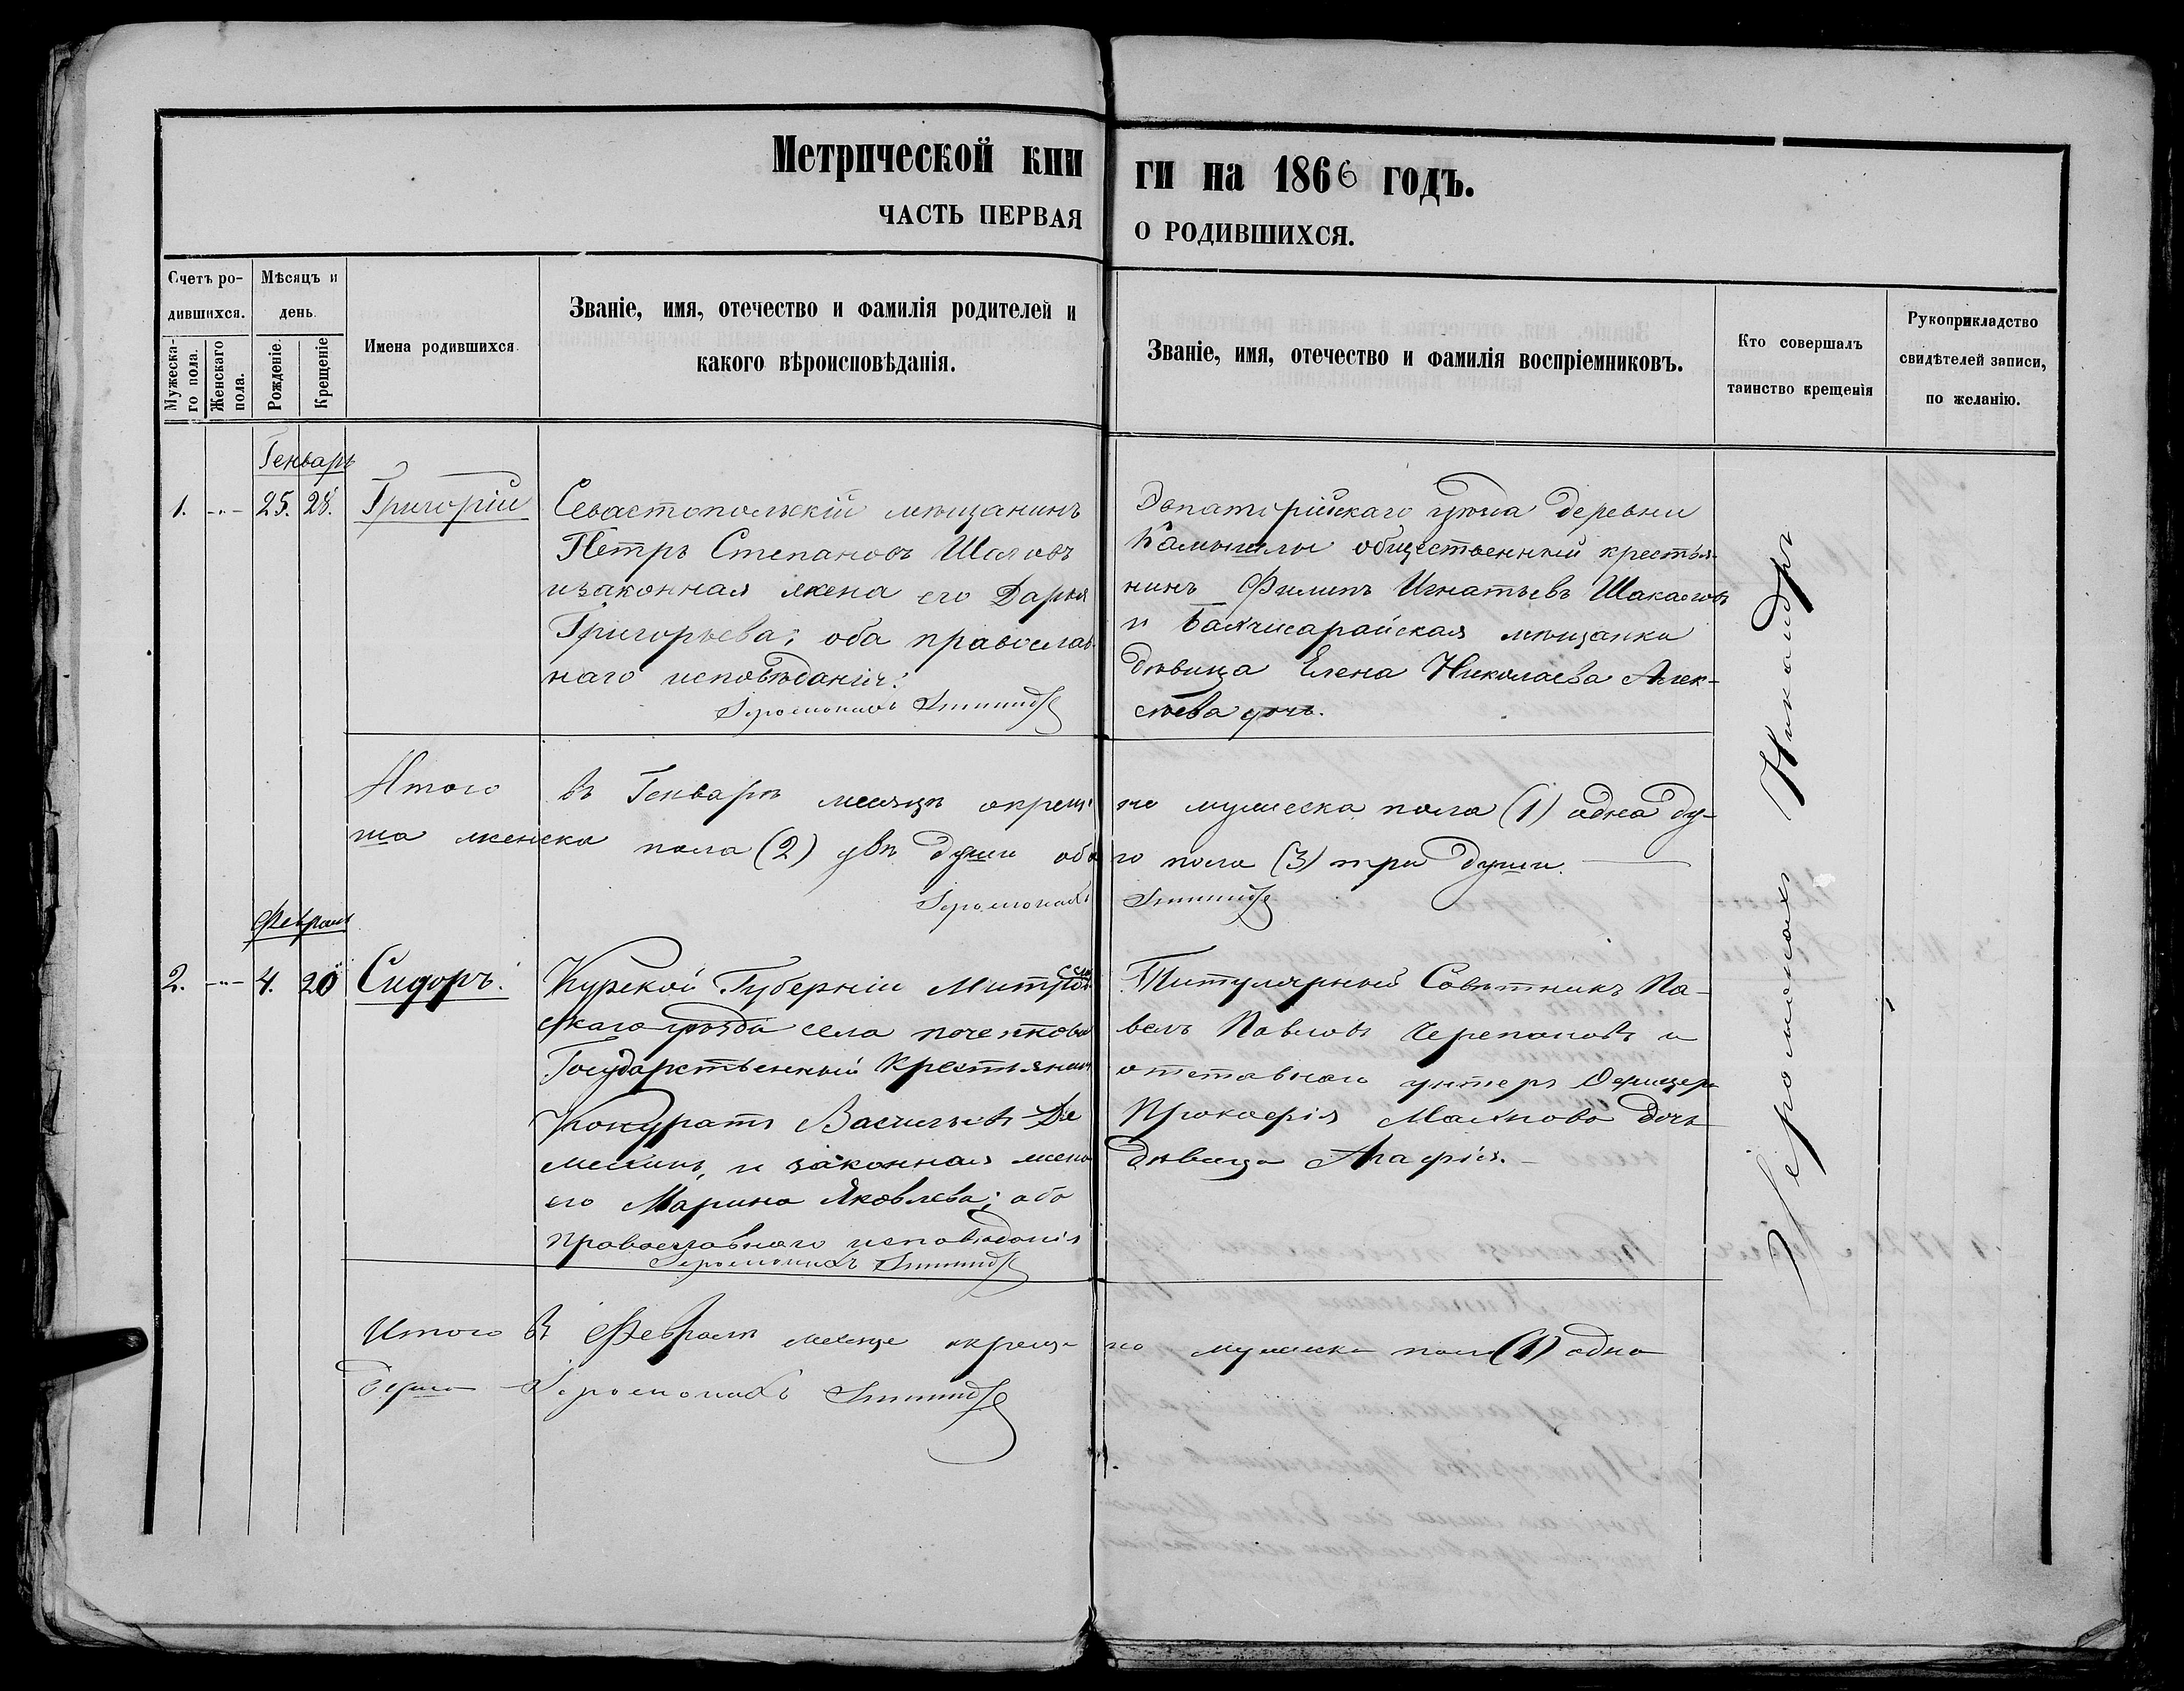 Метрической кни
ги на 1866 годъ.
ЧАСТЬ ПЕРВАЯ
О РОДИВШИХСЯ.
Счетъ ро-
дившихся.
Мужеска-
го пола.
Женскаго
пола.
Мѣсяцъ и
день.
Рожденіе.
Крещеніе
Имена родившихся
Званіе, имя, отечество и фамилія родителей и
какого вѣроисповѣданія.
Званіе, имя, отечество и фамилія воспріемниковъ.
Кто совершалъ
таинство крещенія
Рукоприкладство
свидѣтелей записи,
по желанію.
Генварь
1. -"- 25. 28. Григорій
Севастопольскій мѣщанинъ
Петръ Степановъ
и законная жена его Дарья
Григорьева; оба православ-
наго исповѣданія.
Іеромонахъ
Евпаторійскаго уѣзда деревни
общественный крестья-
нинъ Филипъ Игнатьевъ
и Бахчисарайская мѣщанка
дѣвица Елена Николаева Алек-
сѣева дочь.
Итого въ Генварѣ месяцѣ окреще
но мужеска пола (1) одна ду-
ша женска пола (2) двѣ души обо
го пола (3) три души.
Іеромонахъ
Февраль
2. -"- 4. 20 Сидоръ.
Курской Губерніи
скаго уѣзда села
Государственный Крестьянинъ
Кондратъ Васильевъ Де
мехинъ, и законная жена
его Марина Яковлева; оба
православнаго исповѣданія
Іеромонахъ
Титулярный Совѣтникъ Па-
велъ Павловъ Черепановъ и
отставнаго унтеръ Офицера
Прокофія дочь
дѣвица Агафія.
Іеромонахъ Никандръ
Итого въ Февралѣ месяце окреще
но мужеска пола (1) одна
душа Іеромонахъ